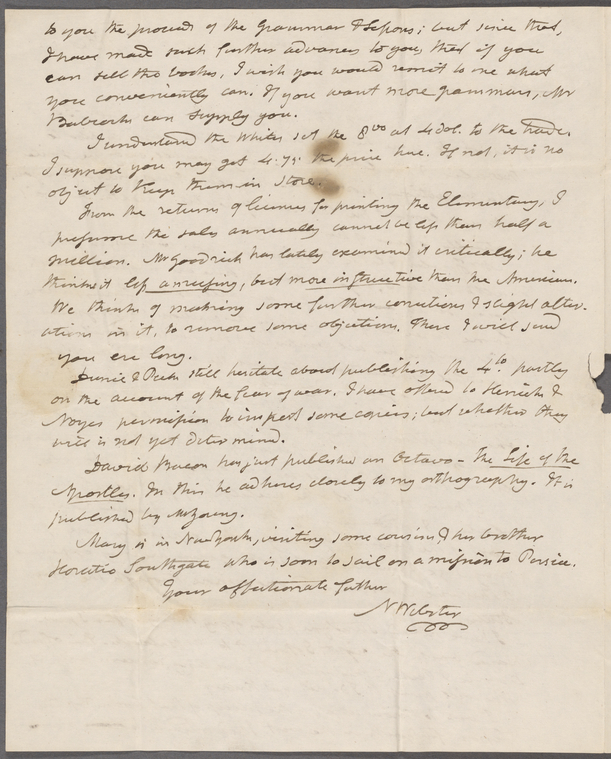 to you the proceeds of the Grammar & Lessons; but since that,
I have made such further advances to you, that if you
can sell the books, I wish you would remit to me what
you conveniently can. If you want more grammars, Mr
Babcock can supply you.
I understand the Whites sell the 8vo at 4 dol. to the trade.
I suppose you may get 4.75. the price here. If not, it is no
object to keep them in store.
From the returns of licenses for printing the Elementary, I
presume the sales annually cannot be less than half a
million. Mr Goodrich has lately examined it critically; he
thinks it less amusing, but more instructive than the American.
We think of making some further corrections & slight alter-
ations in it, to remove some objections. These I will send
you ere long.
Durrie & Peck still hesitate about publishing the 4to. partly
on the account of the fear of war. I have offered to Herrick &
Noyes permission to import some copies; but whether they
will is not yet determined.
David Bacon has just published an Octavo – The Life of the
Apostles. In this he adheres closely to my orthography. It is
published by Mr Young.
Mary is in New York, visiting some cousins & her brother
Horatio Southgate who is soon to sail on a mission to Persia.
Your affectionate father
N Webster